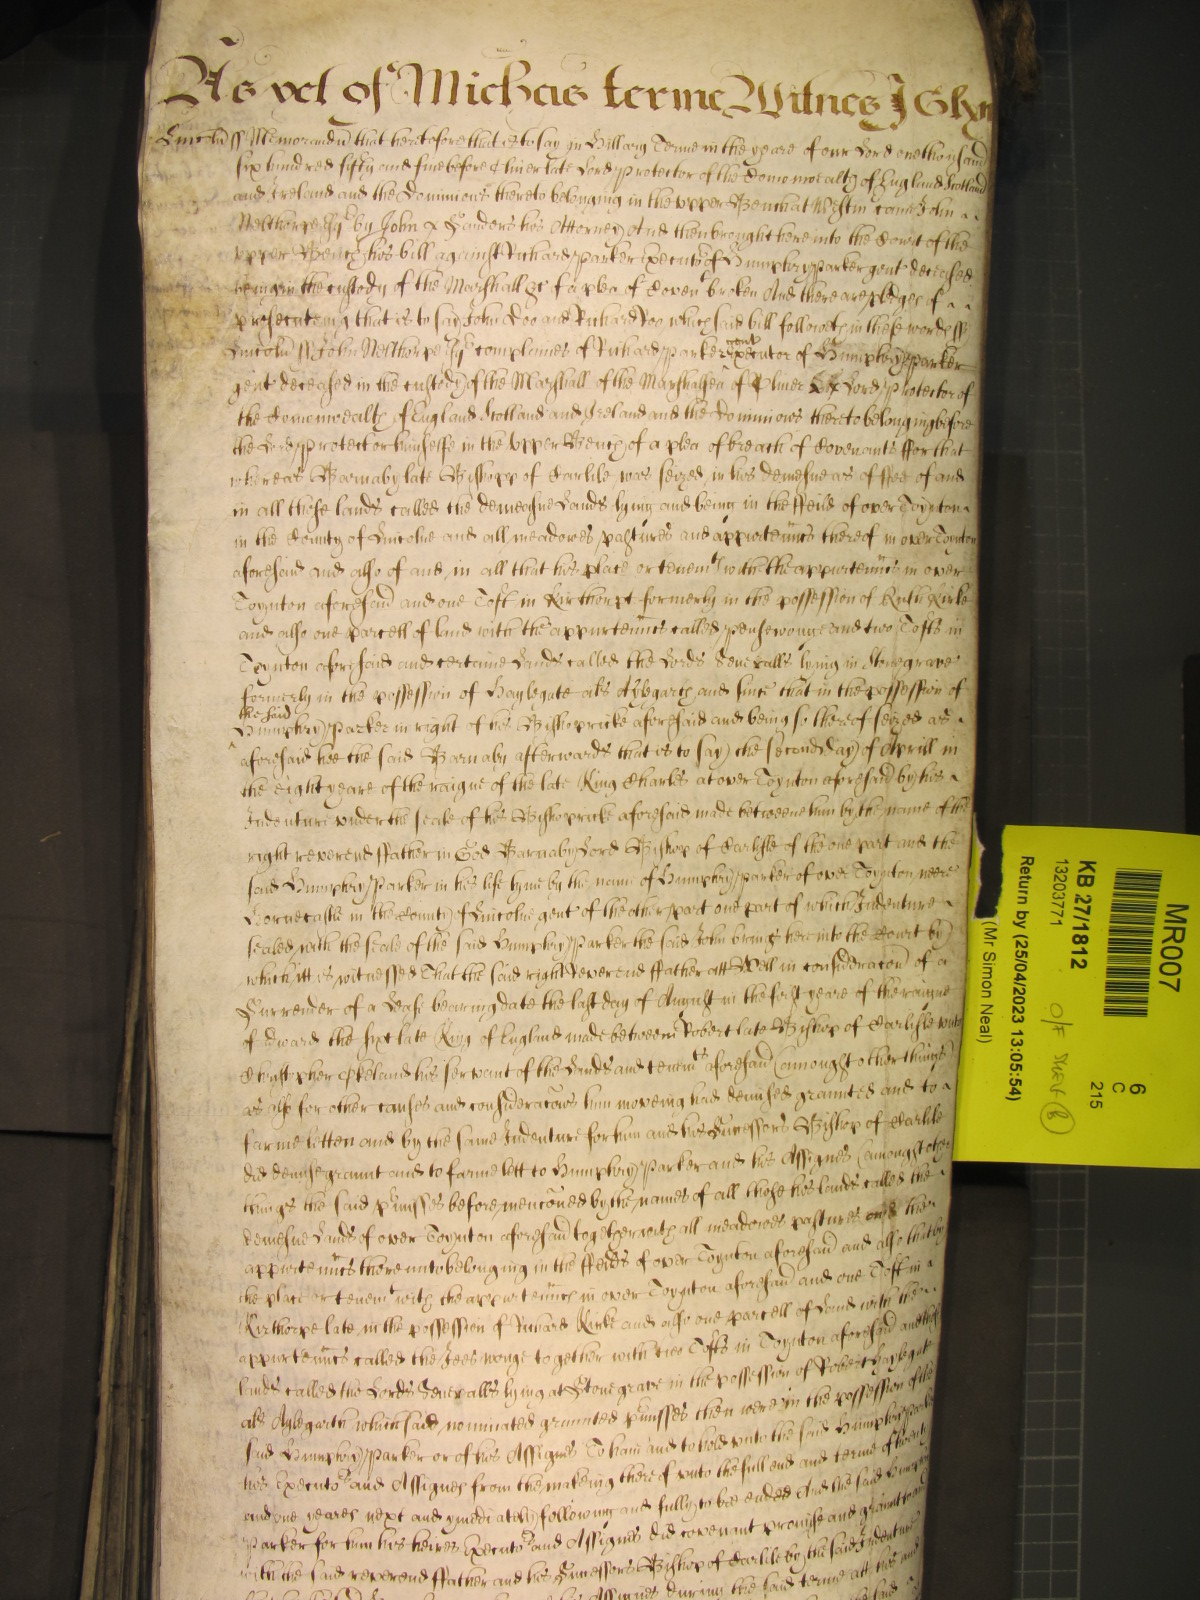 As yet of Michas terme Witnes J Glyn
Lincoln ss Memorandu that heretofore that is to say in Hillary Terme in the yeare of our Lord one thousand
six hundred fifty and five before Oliver late Lord Protector of the Comonwealth of England Scotland
and Ireland and the Dominions thereto belonging in the upper Bench at Westm came John
Nelthorpe Esqr by John Sanders his Attorney And then brought here into the Court of the
upper Bench his bill against Richard Parker Executor of Humphry Parker gent deceased
being in the custody of the Marshall &c of a plea of Covent broken And there are pledges of
prosecuteing that is to say John Doo and Richard Roo which said bill followeth in these words ss
Lincoln ss John Nelthorpe Esqr complaines of Richard Parker gent Executor of Humphry Parker
gent deceased in the custody of the Marshall of the Marshalsea of Oliver Lord Protector of
the Comonwealth of England Scotland and Ireland and the Dominions thereto belonging before
the Lord Protector himselfe in the Upper Bench of a plea of breach of Covenants ffor that
whereas Barnaby late Bishopp of Carlile was seized in his demesne as of ffee of and
in all those lands called the demeasne Lands lying and being in the ffeild of over Toynton
in the County of Lincolne and all meadowes pastures and appurtenncs thereof in over Toynton
aforesaid and also of and in all that his place or tenemt with the appurtenncs in over
Toynton aforesaid and one Toft in Kirthorpe formerly in the possession of Kirke
and also one parcell of land with the appurtenncs called and two Tofts in
Toynton aforesaid and certaine Lands called the Lords Severalls lying in Stonegrave
formerly in the possession of Haylegate als Aylegarth and since that in the possession of
the said
Humphry Parker in right of his Bishopricke aforesaid and being so thereof seized as
aforesaid hee the said Barnaby afterwards that is to say the second day of Aprill in
the eight yeare of the raigne of the late King Charles at over Toynton aforesaid by his
Indenture under the seale of his Bishopricke aforesaid made betweene him by the name of the
right reverend ffather in God Barnaby Lord Bishop of Carlisle of the one part and the
said Humphry Parker in his life tyme by the name of Humphry Parker of over Toynton neere
Hornecastle in the County of Lincolne gent of the other part one part of which Indenture
sealed with the seale of the said Humphry Parker the said John brings here into the Court by
which itt is witnessed That the said right Reverend ffather att Well in consideracon of a
Surrender of a Lease bearing date the last day of August in the first yeare of the raigne
of Edward the sixt late King of England made betweene Robert late Bishop of Carlisle unto
Christopher his servant of the Lands and tenemts aforesaid (amongst other things)
as also for other causes and consideracons him moveing had demised graunted and to
farme letten and by the same Indenture for him and his Successors Bishop of Carlile
did demise graunt and to farme lett to Humphry Parker and his Assignes (amongst other
things) the said pmisses before mencoued by the names of all those his lands called the
demesne Lands of over Toynton aforesaid together with all meadowes pastures and the
appurtenncs thereunto belonging in the ffeilds of over Toynton aforesaid and also that
the place or tenemt with the appurtenncs in over Toynton aforesaid and one Toft in
Kirthorpe late in the possession of Richard Kirke and also one parcell of Land with the
appurtenncs called the wonge together with two Tofts in Toynton aforesaid and
lands called the Lords Severalls lying at Stonegrave in the possession of Robert Haylegate
als Aylegarth which said nominated graunted pmisses then were in the possession of the
said Humphry Parker or of his Assignes To have and to hold unto the said Humphry Parker
his Executors and Assignes from the makeing thereof unto the full end and terme of twenty
and one yeares next and ymediately following and fully to bee ended And the said Humphry
Parker for him his heires Executors and Assignes did covenant promise and graunt to and
with the said reverend ffather and his Successors Bishop of Carlile by the said Indenture
Assignes during the said terme att his and
MR007
6
C
215
KB 27/1812
13203771
O/F Shelf B
Return by (25/04/2023 13:05:54)
(Mr Simon Neal)